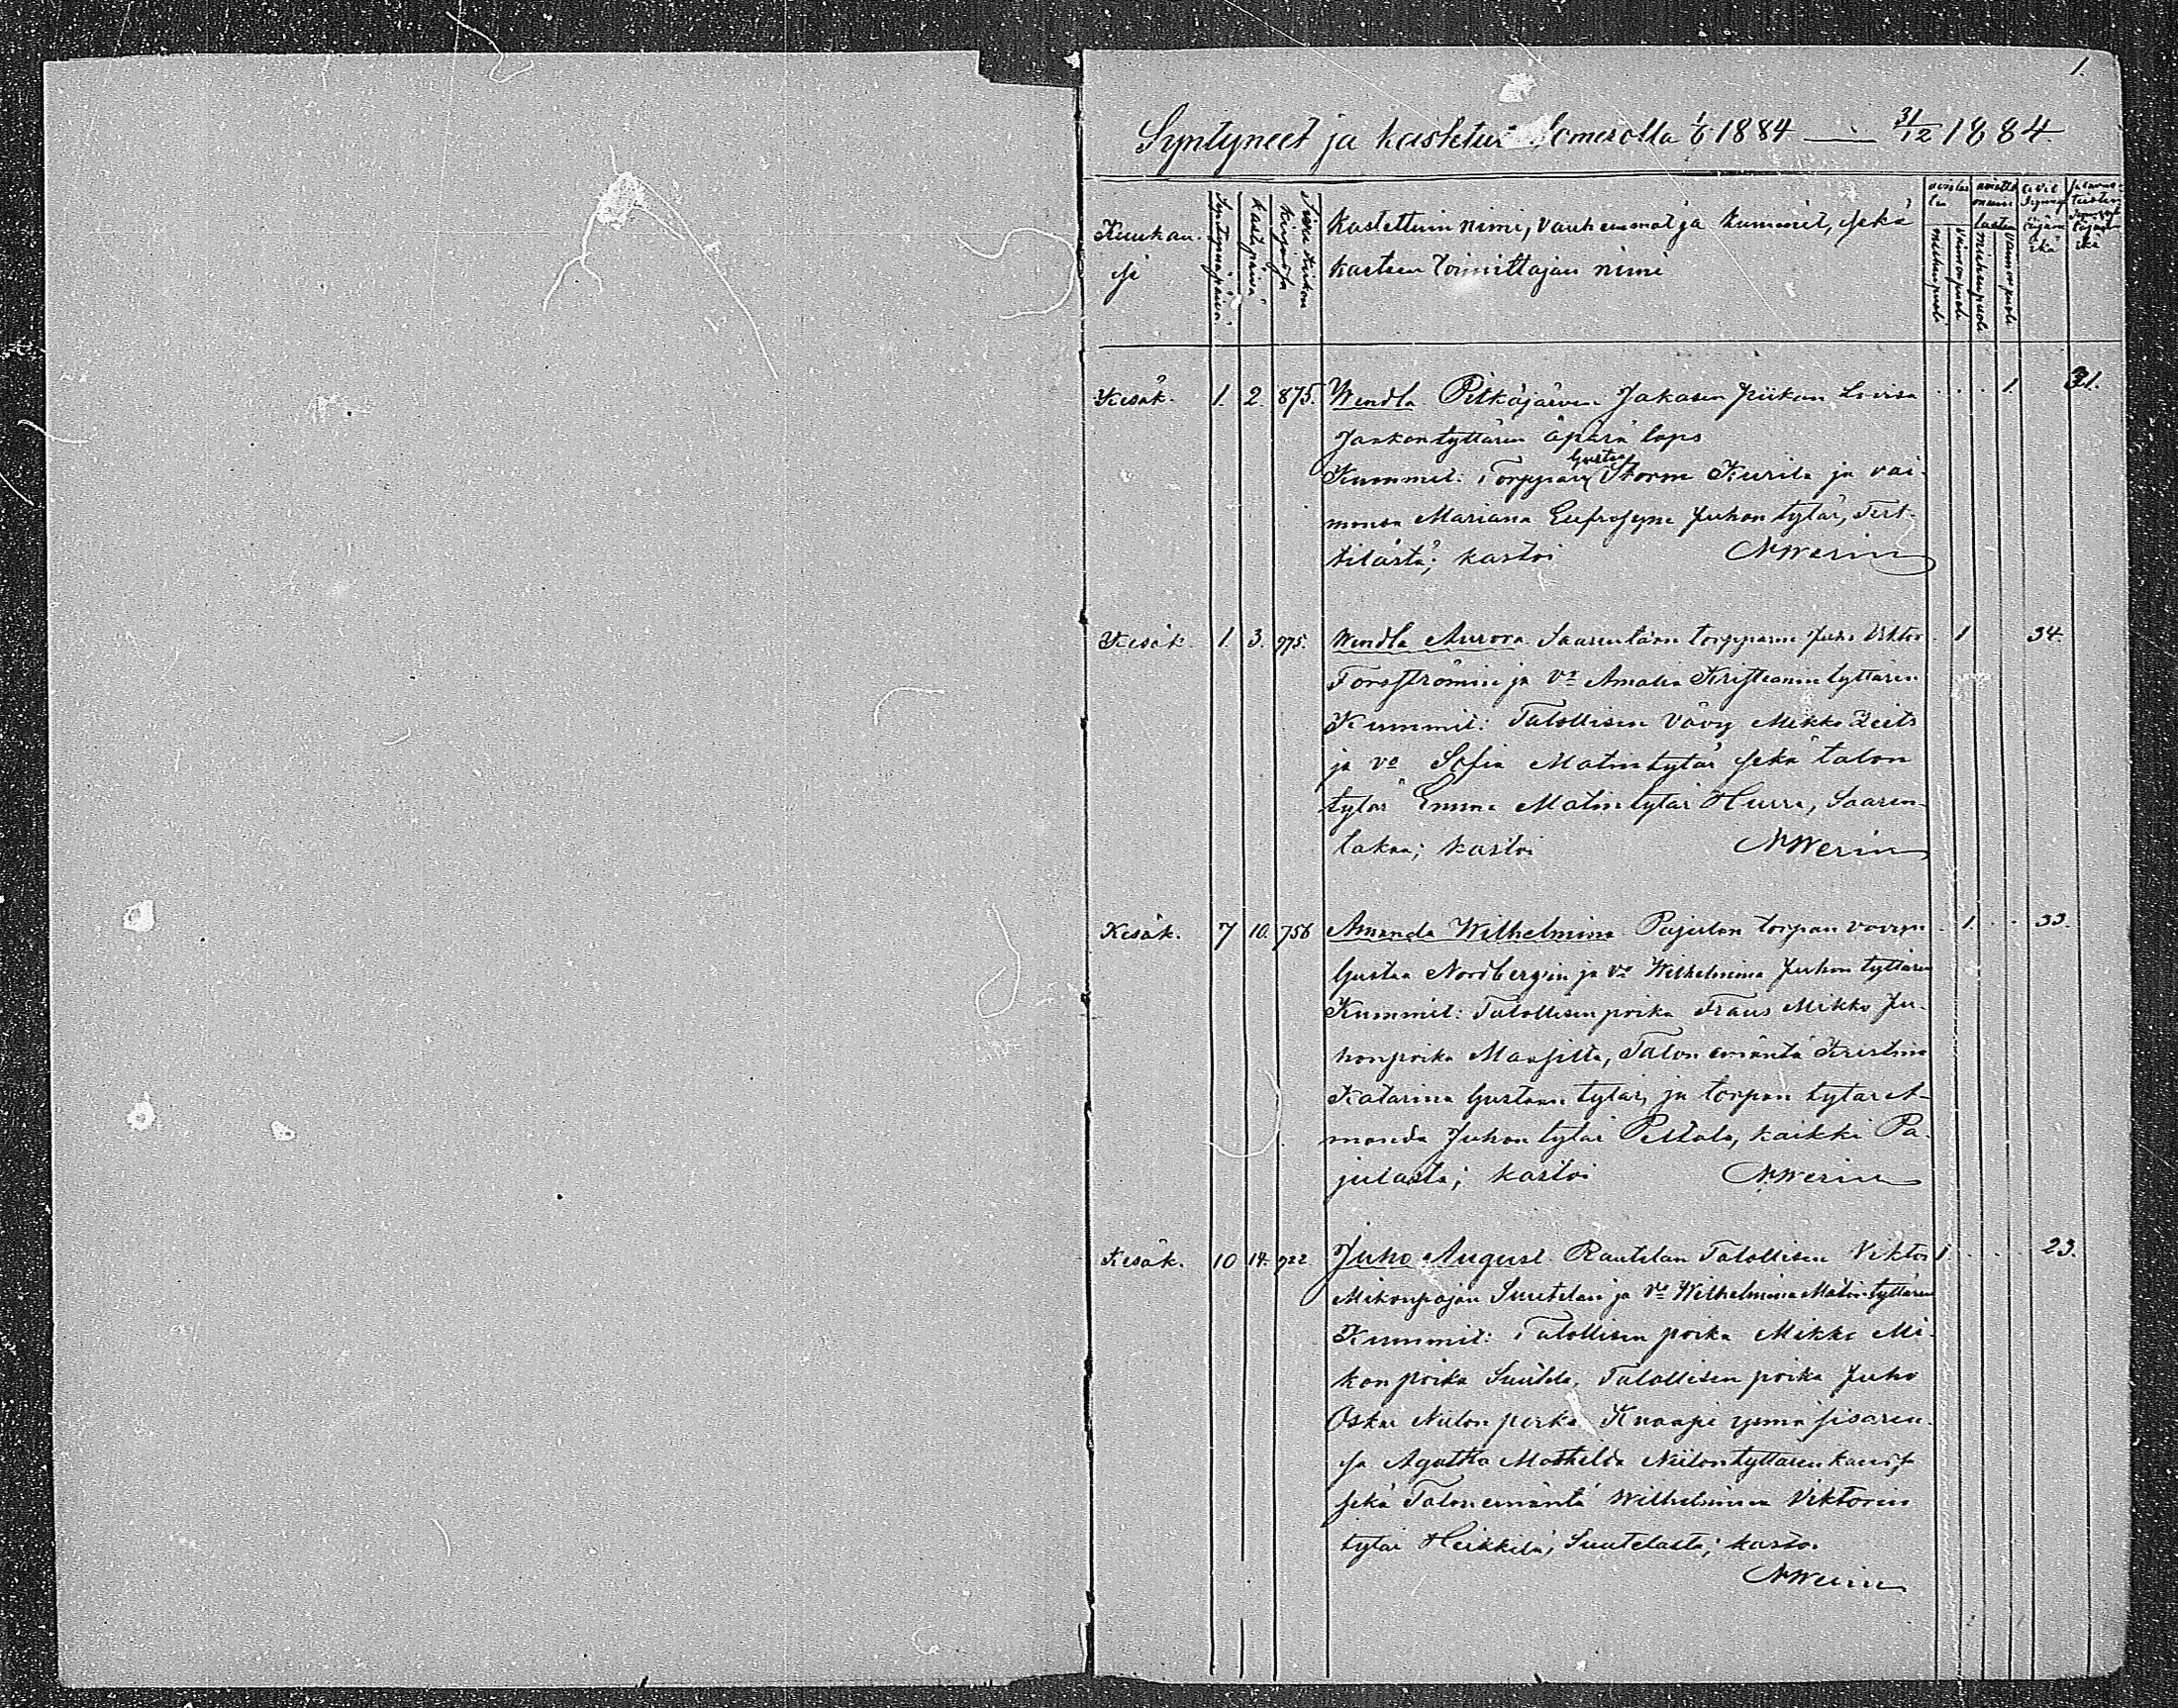 1.
Syntyneet ja kastetut Somerolla 1/6 1884 — 31/12 1884.
Kuukau- Syntymäpäivä kastepäivä Sivu kirkon kirjassa kastettuin nimi, vanhemmat ja kummit, sekä
si kasteen toimittajan nimi
miehenpuoli vaimonpuoli miehenpuoli vaimonpuoli
Kesäk. 1. 2. 875. Wendla Pitkäjärven Jakasen piikan Lovisa 1 31.
Jaakontyttären äpärä laps
Gustaa
Kummit: Torppari Storm Kurila ja vai-
monsa Mariana Eufrosyne Juhon tytär, Tert-
tilästä; kastoi NWerin
Kesäk. 1. 3. 975. Wendla Aurora Saarentaan torpparin Juho Viktor 1 34.
Forsströmin ja vo Amalia Kristianin tyttären
Kummit: Talollisen vävy Mikko
ja vo Sofia Matintytär sekä talon
tytär Emma Matintytär Hurri, Saaren-
takaa; kastoi NWerin
Kesäk. 7 10. 756 Amanda Wilhelmina Pajulan torpan vävyn 1. 33.
Gustaa Nordbergin ja vo Wilhelmina Juhon tyttären
Kummit: Talollisen poika Frans Mikko Ju-
honpoika Mansitta, Talon emäntä Kristina
Katarina Gustaan tytär, ja torpan tytär A-
manda Juhon tytär Peltola, kaikki Pa-
julasta; kastoi NWerin
Kesäk. 10 14. 922 Juho August Rautelan Talollisen Viktor 1 23.
Mikonpojan Suutelan ja vo Wilhelmina Matintyttären
Kummit: Talollisen poika Mikko Mi-
kon poika Suutela, Talollisen poika Juho
Oskar Niilon poika Knaapi ynnä sisaren-
sa Agatha Mathilda Niilontyttären kanss
sekä Talonemäntä Wilhelmina Viktorin
tytär Heikkilä, Suutelasta; kastoi
NWerin